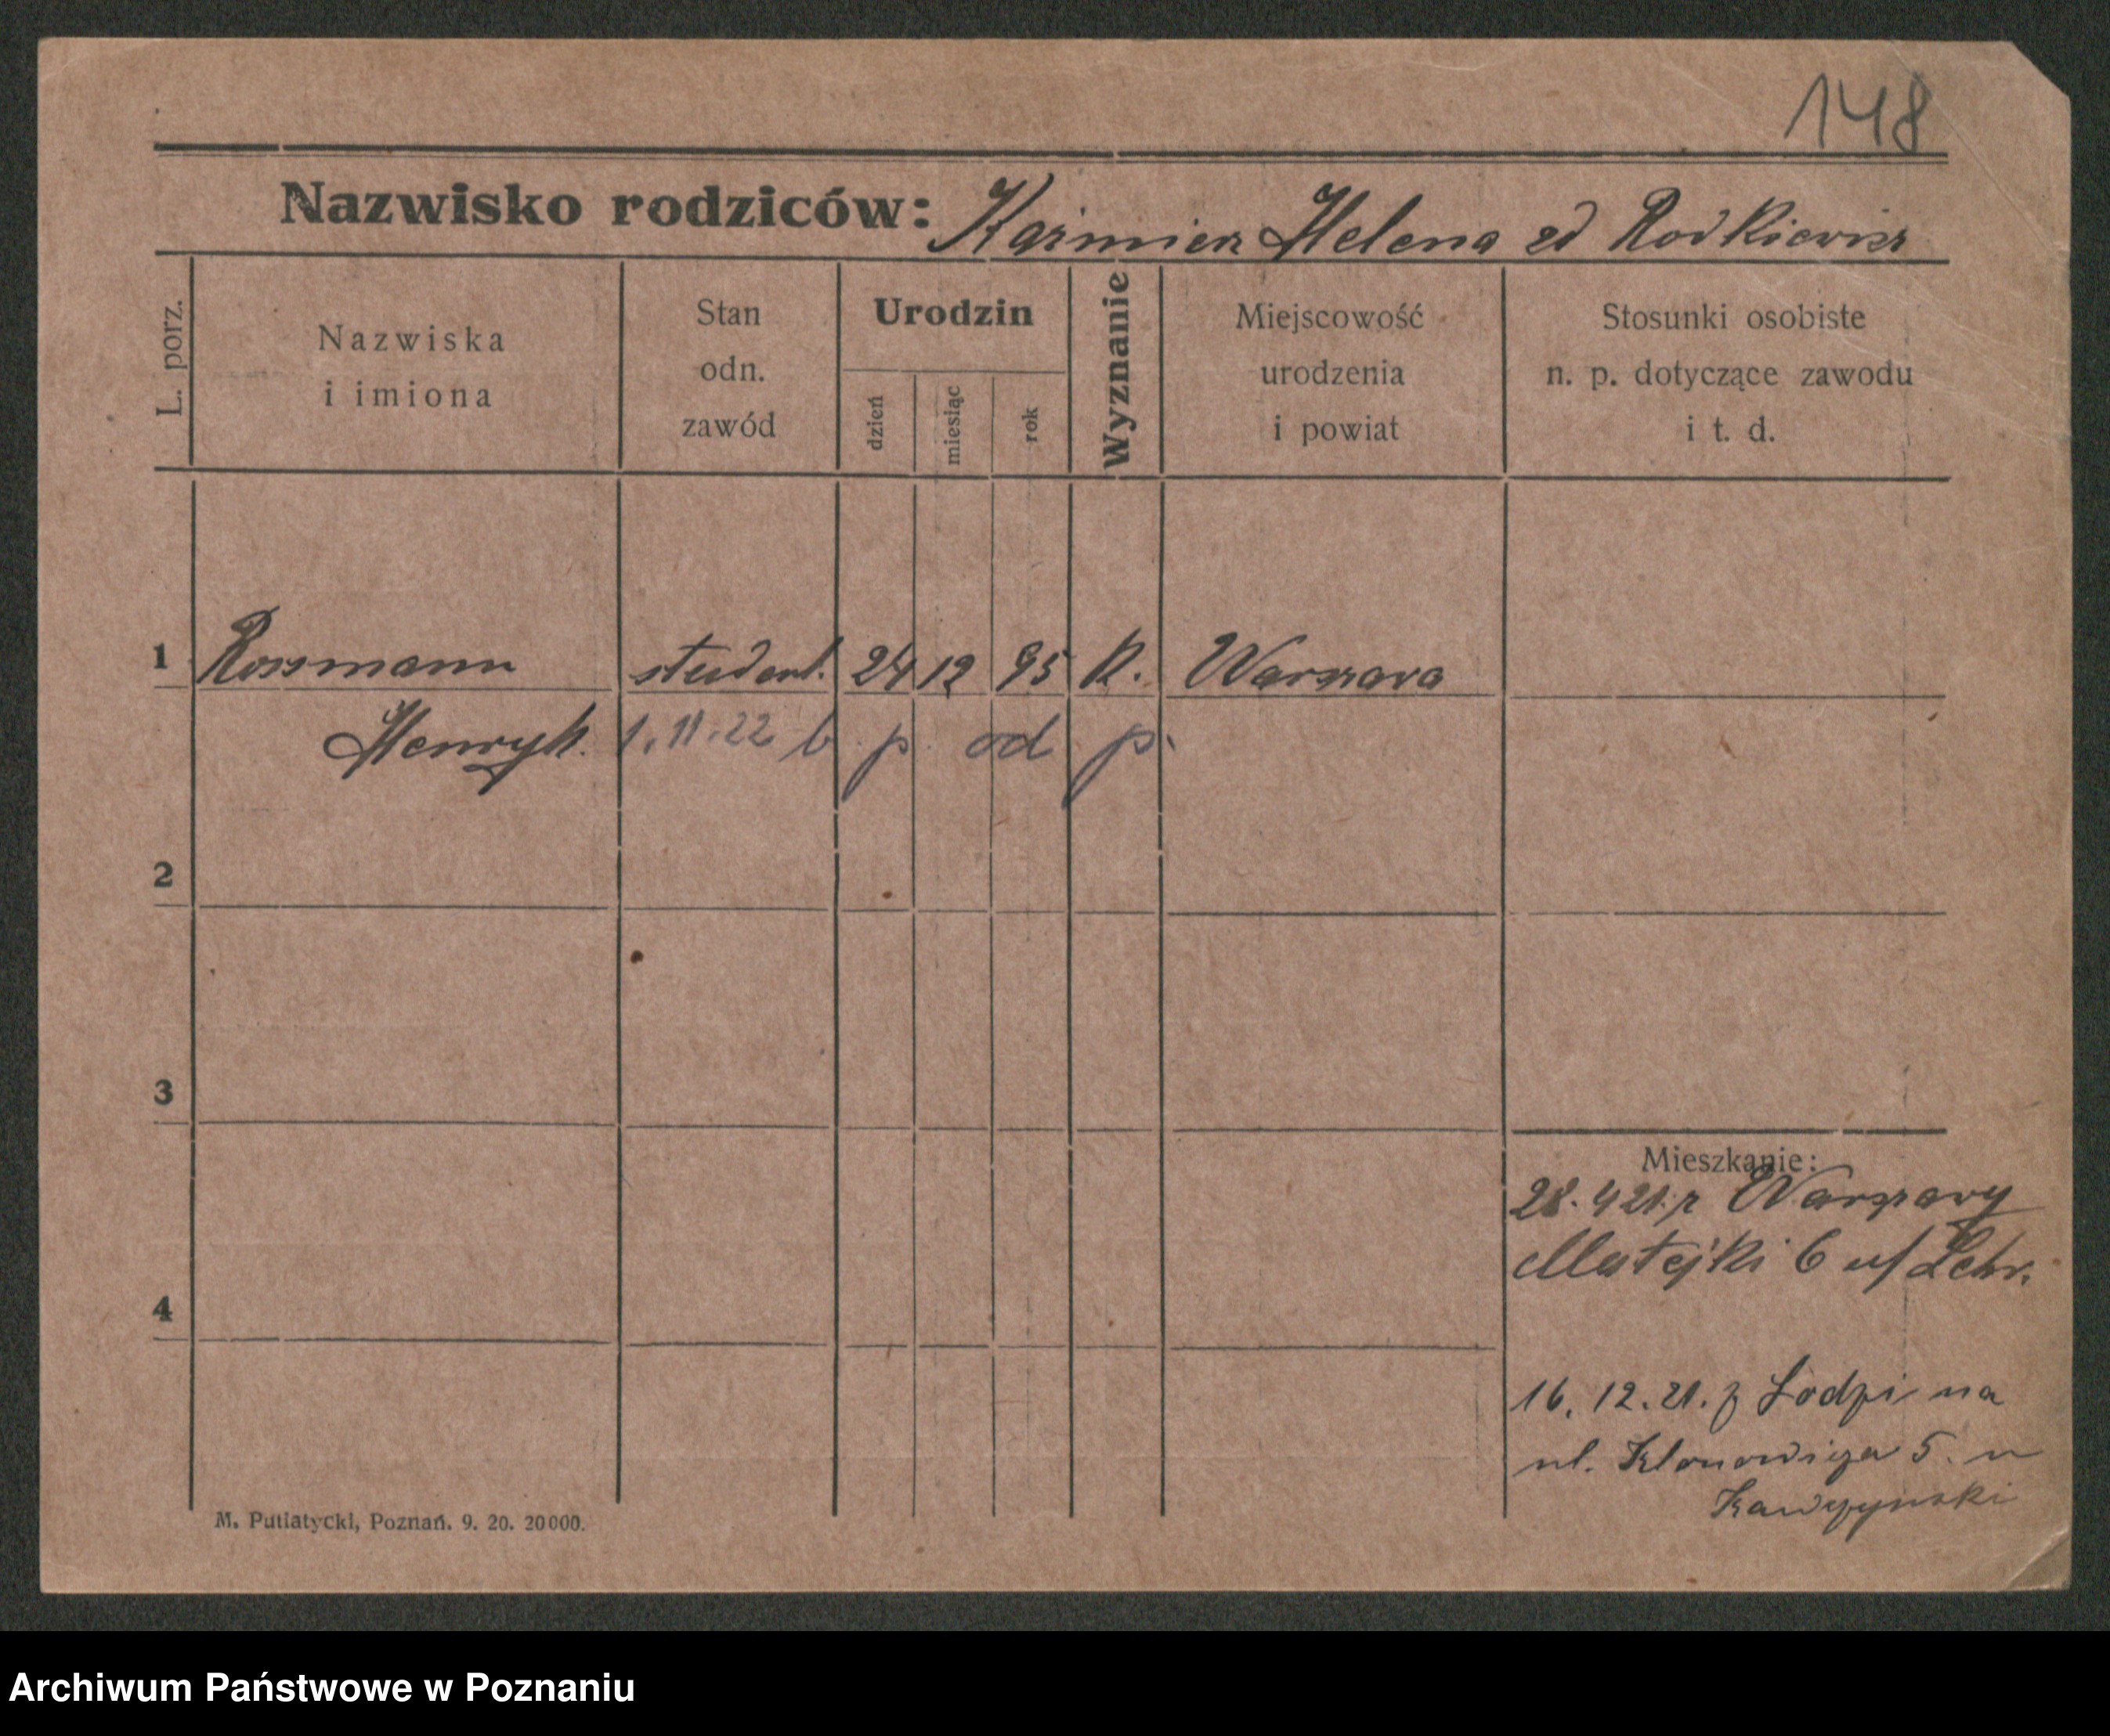 148
Nazwisko rodziców: Kazmierz Helena zd Rodkiewicz
L. porz.
Nazwiska
i imiona
Stan
odn.
zawód
Urodzin
dzień
miesiąc
rok
Wyznanie
Miejscowość
urodzenia
i powiat
Stosunki osobiste
n. p. dotyczące zawodu
i t. d.
1 Rossmann student. 24 12 95 K. Warszawa
Henryk. 1.11.22 b p. od p.
2
3
4
Mieszkanie:
28.4 21. z Warszawy
Matejki 6 u/
16. 12. 21. z Lodzi na
ul. Klonowiza 5. u
Kawczynski
M. Putiatycki, Poznań. 9. 20. 20000.
Archiwum Państwowe w Poznaniu